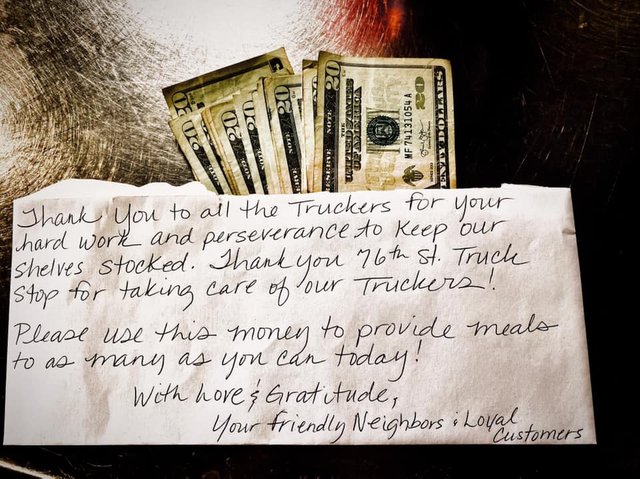 20 20 20 20 20
THE UNITED STATES OF AMERICA
MF 74131054 A
20
TWENTY DOLLARS
Thank you to all the Truckers for your
hard work and perseverance to keep our
shelves stocked. Thank you 76th St. Truck
Stop for taking care of our Truckers!
Please use this money to provide meals
to as many as you can today!
With Love & Gratitude,
Your friendly Neighbors & Loyal
Customers